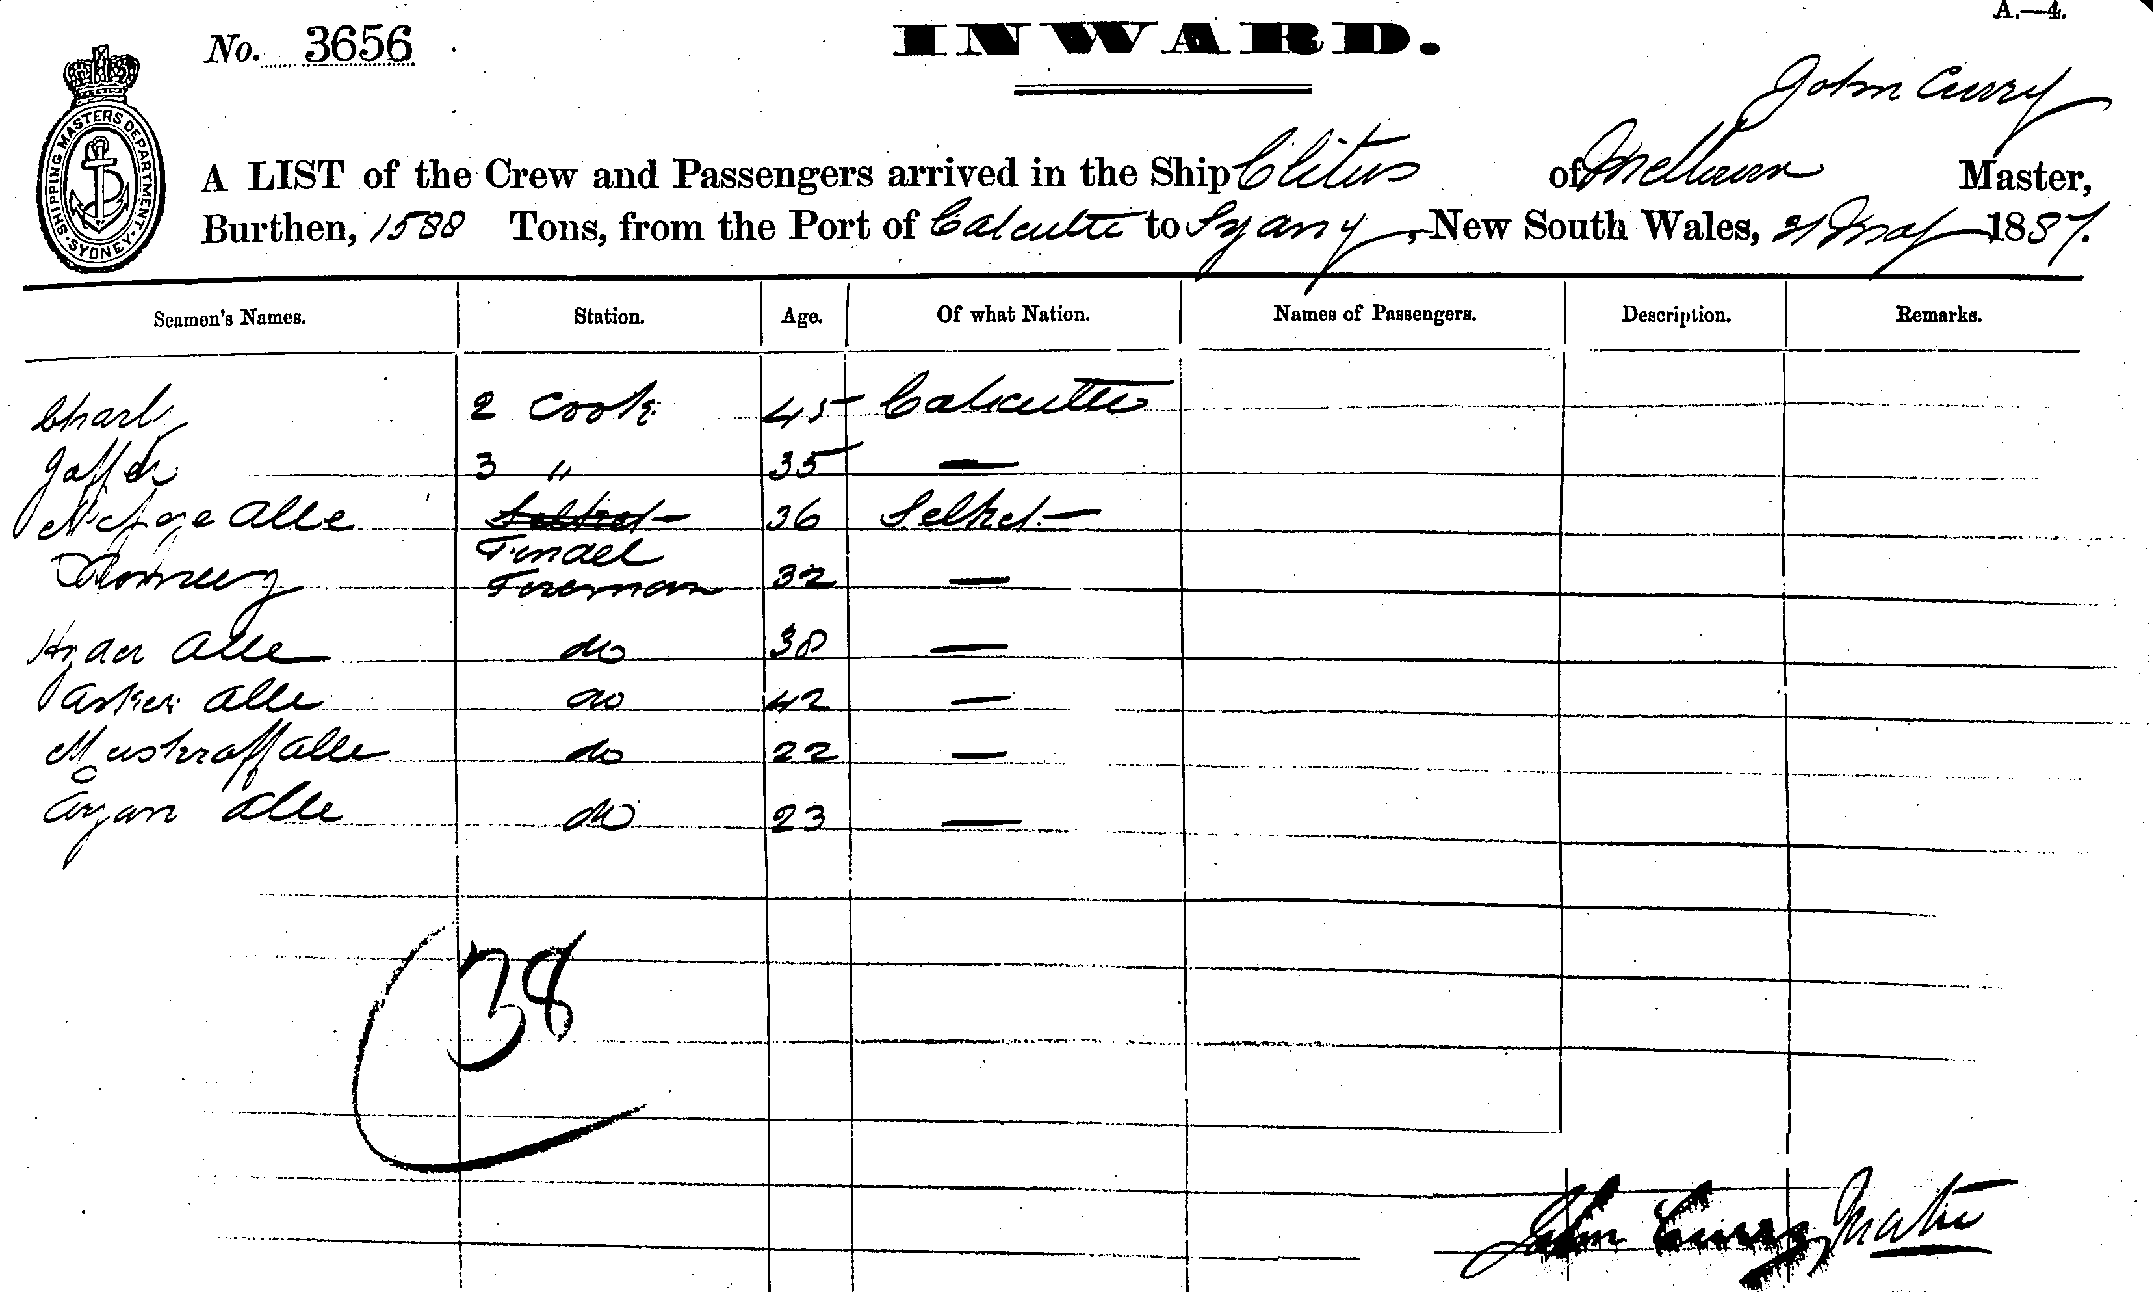 A.—4.
No. 3656
INWARD.
SHIPPING MASTERS DEPARTMENT SYDNEY
John Curry
A LIST of the Crew and Passengers arrived in the Ship Clitus of Melbourn Master,
Burthen, 1588 Tons, from the Port of Calcutta to Sydney, New South Wales, 21 May 1887.
Seamen's Names. Station. Age. Of what Nation. Names of Passengers. Description. Remarks.
2 Cook 45 Calcutta
Jaffer 3 " 35 —
Alle 36 Selhet —
Tindel
Fireman 32 —
Hyder Alle do 38 —
Alle do 42 —
Mushraff Alle do 22 —
Alle do 23 —
38
John Curry Master